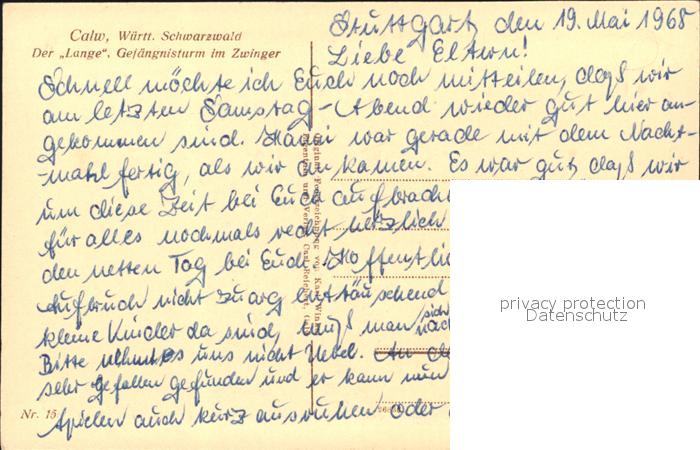 Calw, Württ. Schwarzwald
Der „Lange“, Gefängnisturm im Zwinger
Stuttgart, den 19. Mai 1968
Liebe Eltern!
Schnell möchte ich Euch noch mitteilen, daß wir
am letzten Samstag-Abend wieder gut hier an-
gekommen sind. Mami war gerade mit dem Nacht-
-mahl fertig, als wir ankamen. Es war gut, daß wir
um diese Zeit bei Euch aufbrach
für alles nochmals recht herzlich
den netten Tag bei Euch. Hoffentlic
Aufbruch nicht zuarg enttäuschend
kleine Kinder da sind, muß man sich nac
Bitte nehmt es uns nicht Uebel.
sehr gefallen gefunden und er kann nun
spielen auch kurz ausruhen oder
Nr. 15
privacy protection
Datenschutz